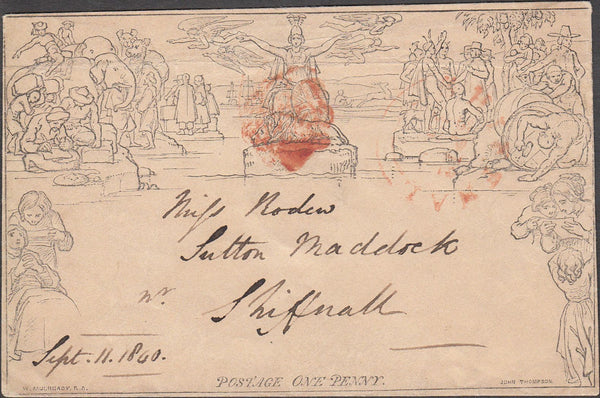 Miss Roden
Sutton Maddock
nr
Shiffnall
Sept. 11. 1840.
POSTAGE ONE PENNY.
W. MULREADY. R. A.
JOHN THOMPSON.